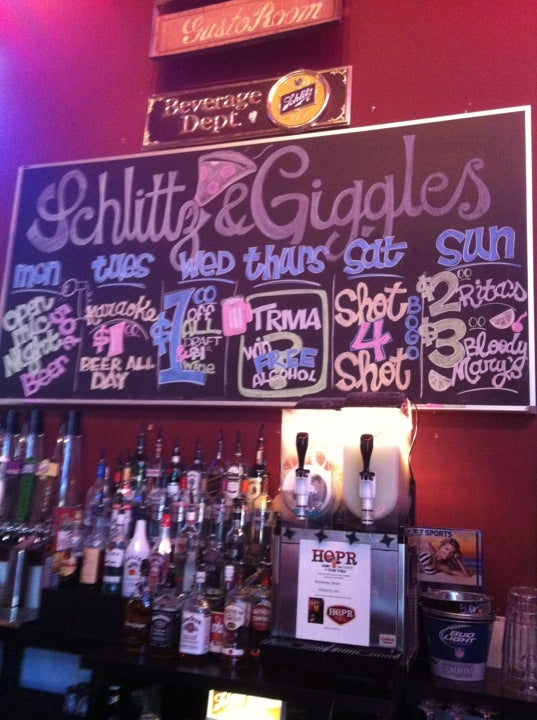 Gusto Room
Beverage
Dept.
Schlitz
Schlittz & Giggles
mon tues wed thurs sat sun
Open
mic
Night
Beer
Karaoke
$1.00
BEER ALL
DAY
$1.00 OFF
ALL
DRAFT
& $1
wine
TRIVIA
win
FREE
ALCOHOL
Shot
4
Shot
BOGO
$2.00 Rita's
$3.00 Bloody
Mary's
HOPR
HOPR
SPORTS
BUD
LIGHT